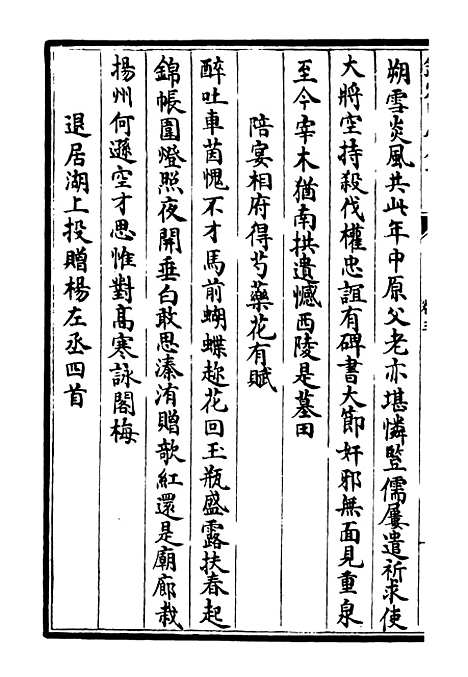 朔雪炎風共此年中原父老亦堪憐豎儒屢遣祈求使
大將空持殺伐權忠誼有碑書大節奸邪無面見重泉
至今宰木猶南拱遺憾西陵是墓田
陪宴相府得芍藥花有賦
醉吐車茵愧不才馬前蝴蝶趂花回玉瓶盛露扶春起
錦帳圍燈照夜開垂白敢思溱洧贈歌紅還是廟廊栽
揚州何遜空才思惟對高寒詠閣梅
退居湖上投贈楊左丞四首